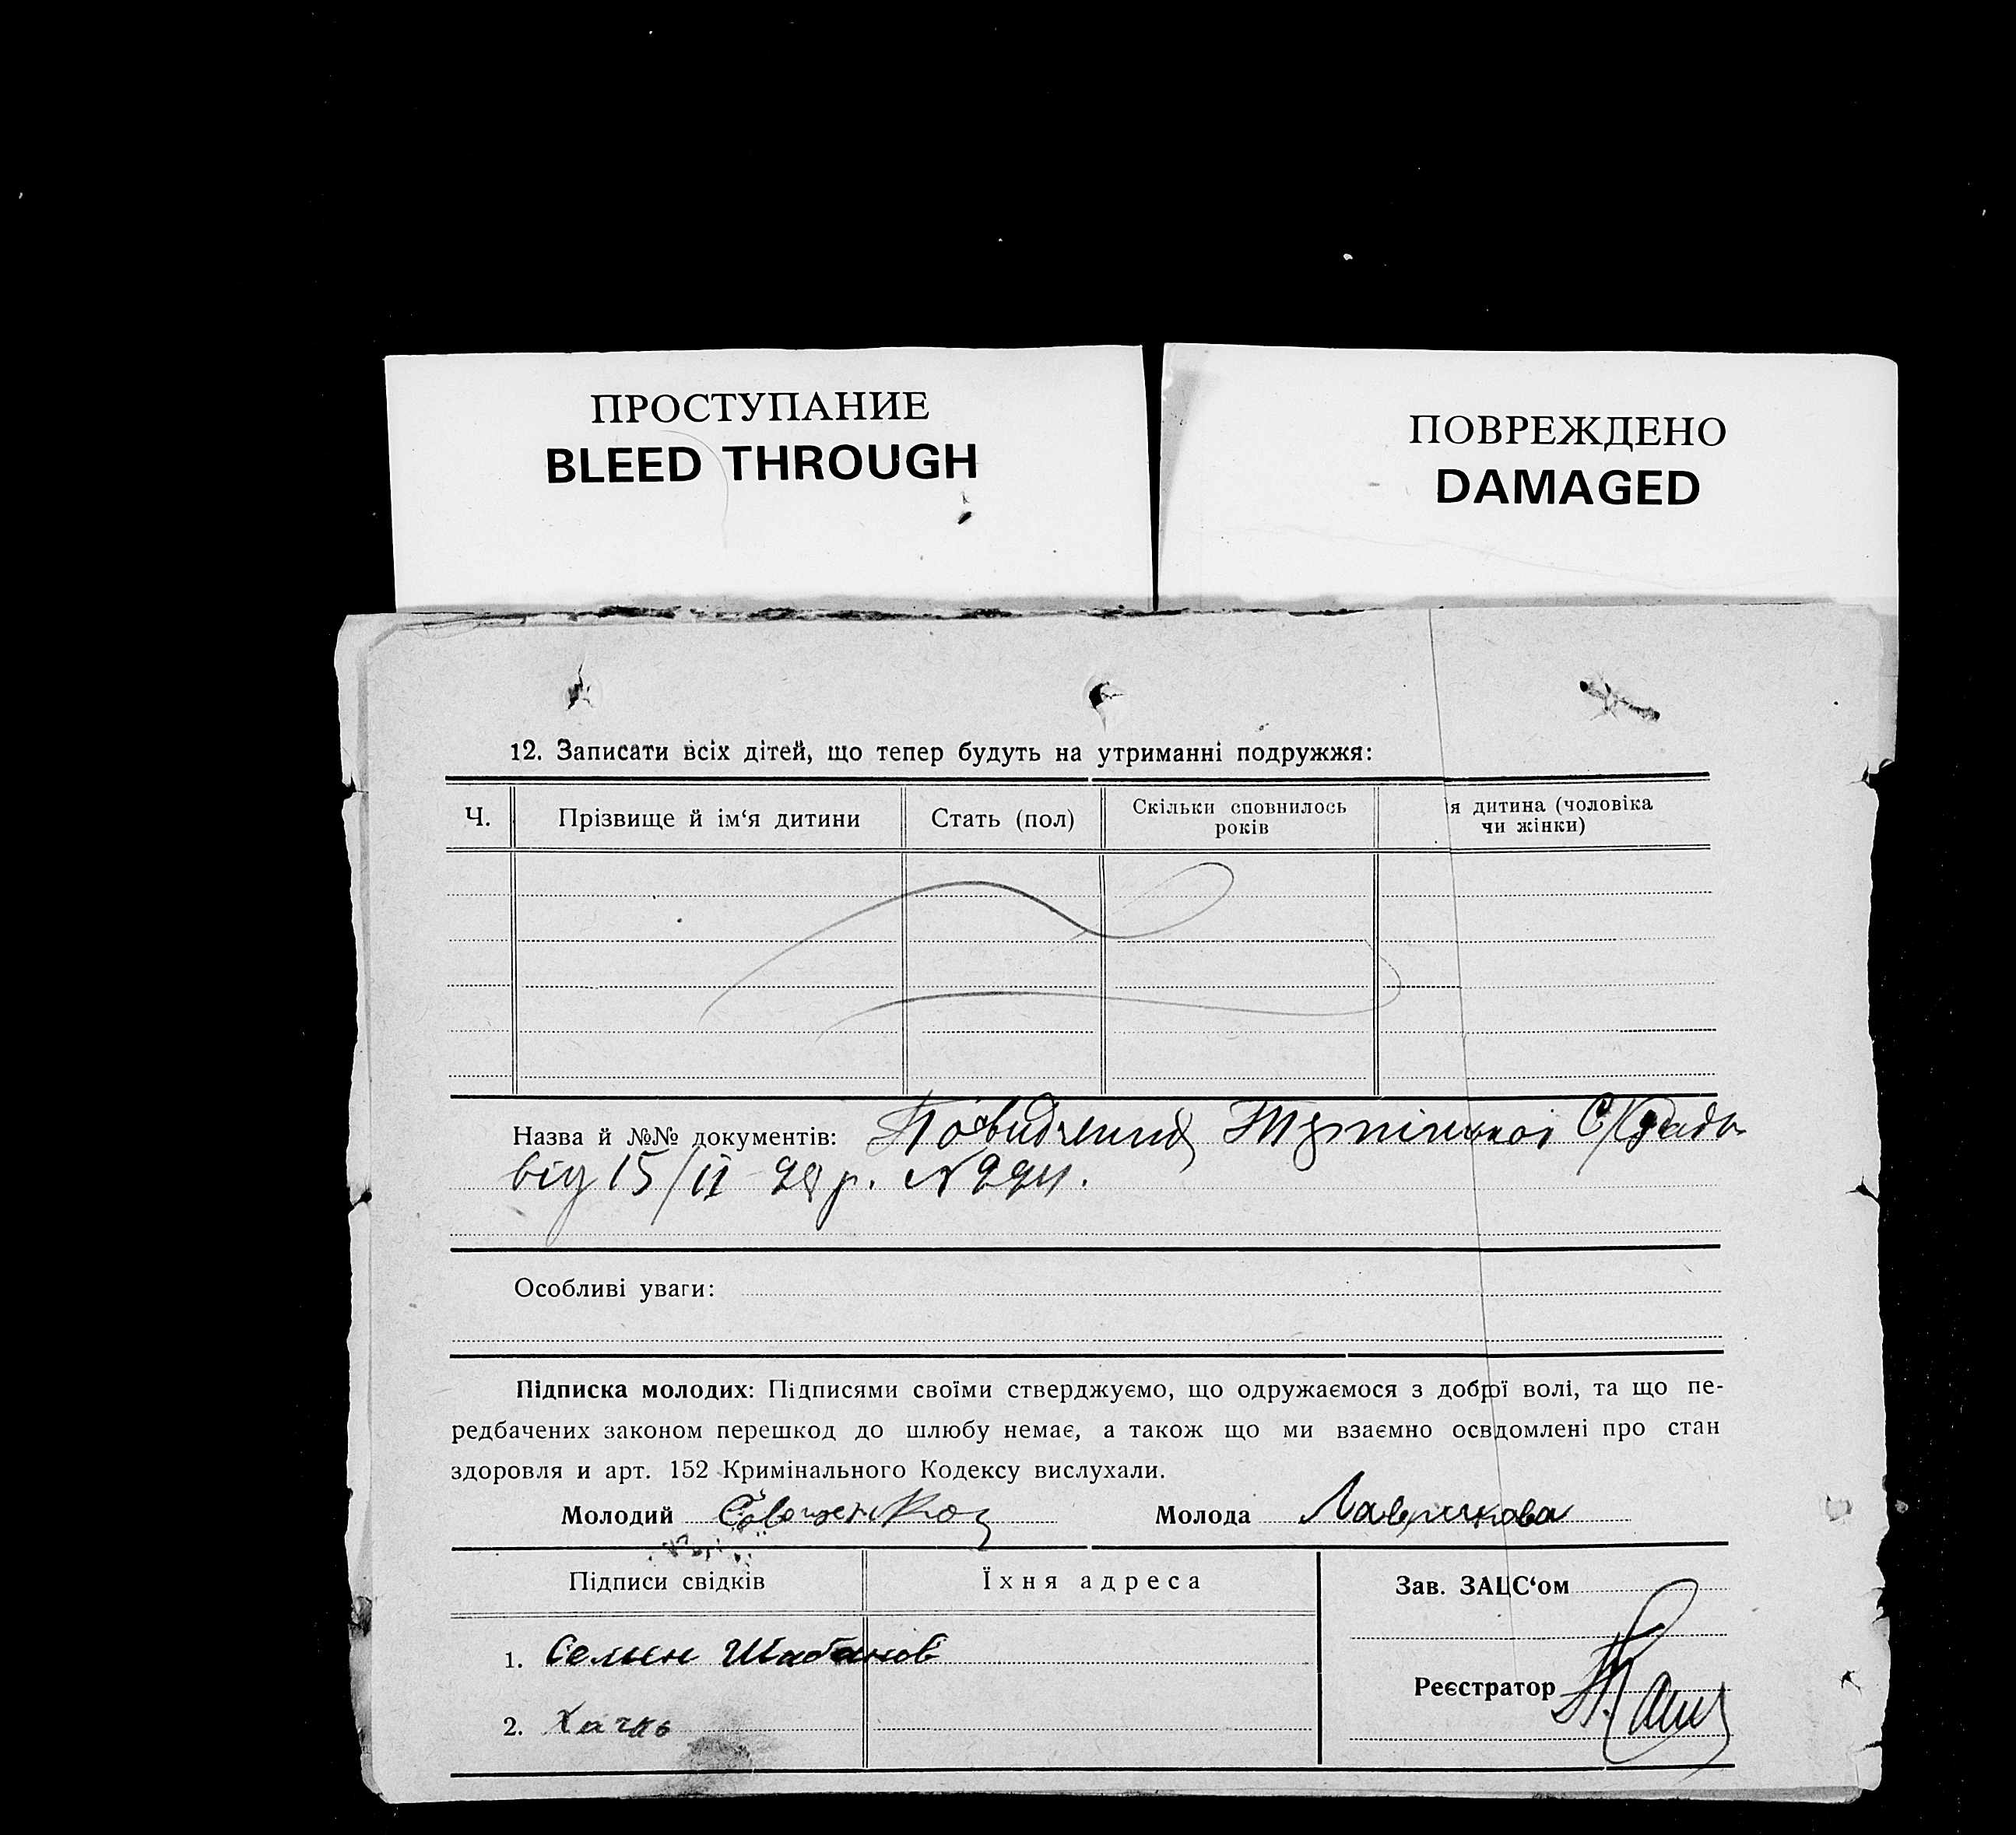 ПРОСТУПАНИЕ
BLEED THROUGH
ПОВРЕЖДЕНО
DAMAGED
12. Записати всіх дітей, що тепер будуть на утриманні подружжя:
Ч.
Прізвище й ім‘я дитини
Стать (пол)
Скільки сповнилось
років
я дитина (чоловіка
чи жінки)
Назва й №№ документів: С/Ради
від 15/II
Особливі уваги:
Підписка молодих: Підписями своїми стверджуємо, що одружаємося з доброї волі, та що пе-
редбачених законом перешкод до шлюбу немає, а також що ми взаємно освдомлені про стан
здоровля и арт. 152 Кримінального Кодексу вислухали.
Молодий
Молода Лаврикова
Підписи свідків
Їхня адреса
Зав. ЗАЦС‘ом
1. Семен Шабанов
Реєстратор
2.